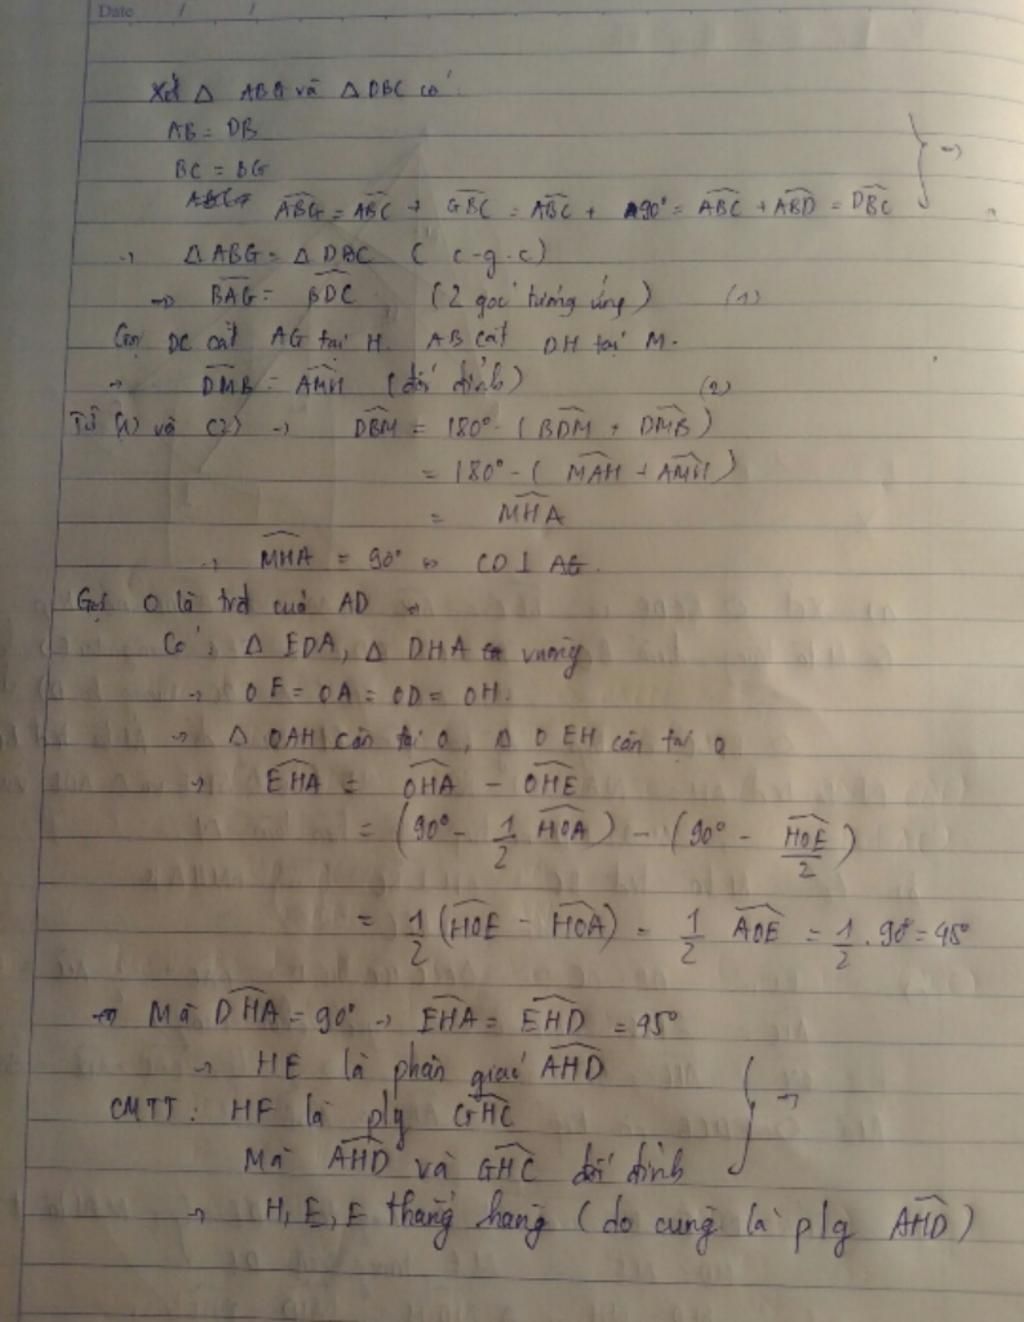 Date / /
Xét Δ ABG và Δ DBC có:
AB = DB
BC = BG
\widehat{ABG} = \widehat{ABC} + \widehat{GBC} = \widehat{ABC} + 90° = \widehat{ABC} + \widehat{ABD} = \widehat{DBC} } →
→ Δ ABG = Δ DBC ( c-g-c)
→ \widehat{BAG} = \widehat{BDC} (2 góc tương ứng) (1)
Gọi DC cắt AG tại H. AB cắt DH tại M.
→ \widehat{DMB} = \widehat{AMH} (đối đỉnh) (2)
Từ (1) và (2) → \widehat{DBM} = 180° - (\widehat{BDM} + \widehat{DMB})
= 180° - (\widehat{MAH} + \widehat{AMH})
= \widehat{MHA}
→ \widehat{MHA} = 90° ⇔ CD ⊥ AG.
Gọi O là trđ của AD
Có: Δ EDA, Δ DHA vuông
→ OE = OA = OD = OH.
→ Δ OAH cân tại O, Δ OEH cân tại O
→ \widehat{EHA} = \widehat{OHA} - \widehat{OHE}
= (90° - 1/2 \widehat{HOA}) - (90° - \widehat{HOE}/2)
= 1/2 (\widehat{HOE} - \widehat{HOA}) = 1/2 \widehat{AOE} = 1/2 . 90° = 45°
Mà \widehat{DHA} = 90° → \widehat{EHA} = \widehat{EHD} = 45°
→ HE là phân giác \widehat{AHD}
CMTT: HF là p/g \widehat{GHC} } →
Mà \widehat{AHD} và \widehat{GHC} đối đỉnh
→ H, E, E thẳng hàng (do cùng là p/g \widehat{AHD})